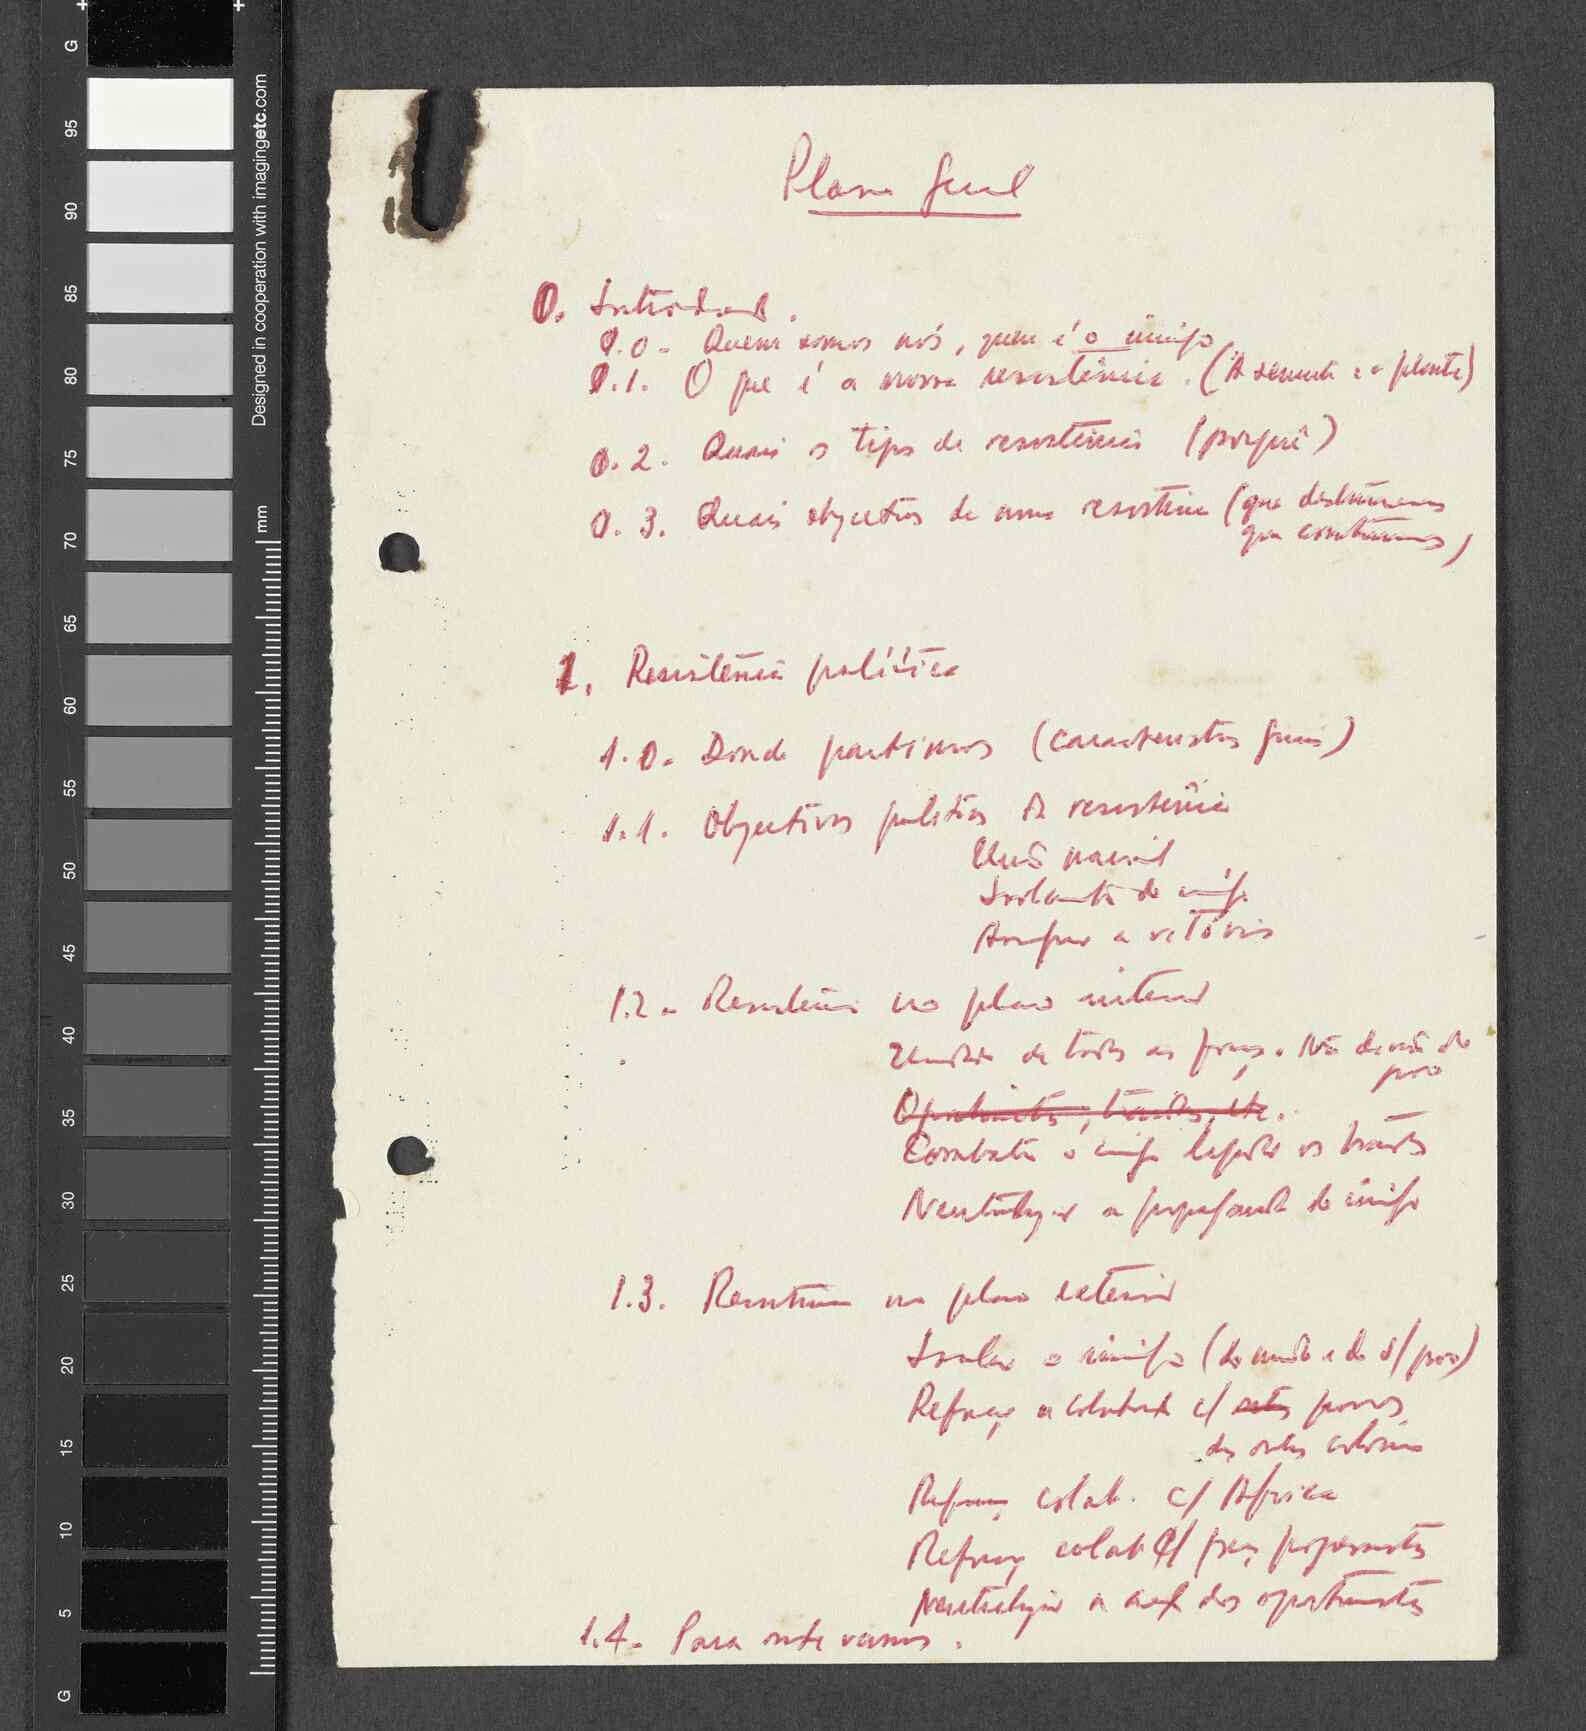 Plano geral
0. Introdução.
0.0. Quem somos nós, quem é o inimigo
0.1. O que é a nossa resistência. (A semente e a planta)
0.2. Quais os tipos de resistência (porquê)
0.3. Quais objectivos de uma resistência (que destruímos
que construímos)
1. Resistência política
1.0. Donde partimos (características gerais)
1.1. Objectivos políticos da resistência
União nacional
Isolamento do inimigo
Assegurar a vitória
1.2. Resistência no plano interior
Unidade de todas as forças. Não divisão do
povo
Oportunistas, traidores, etc.
Combater o inimigo liquidar os traidores
Neutralizar a propaganda do inimigo
1.3. Resistência no plano exterior
Isolar o inimigo (do mundo e do s/ povo)
Reforçar a colaboração c/ outros povos
das outras colónias
Reforçar colab. c/ África
Reforçar colab c/ forças progressistas
Neutralizar a acção dos oportunistas
1.4. Para onde vamos.
G
95
90
85
80
75
70
65
60
55
50
45
40
35
30
25
20
15
10
5
G
mm
Designed in cooperation with imagingetc.com